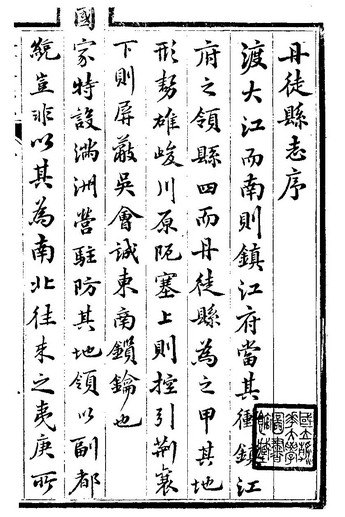 丹徒縣志序
渡大江而南則鎮江府當其衝鎮江
府之領縣四而丹徒縣為之甲其地
形勢雄峻川原阨塞上則控引荆襄
下則屏蔽吳會誠東南鎖鑰也
國
家特設滿洲營駐防其地領以副都
統豈非以其為南北往来之夷庚所